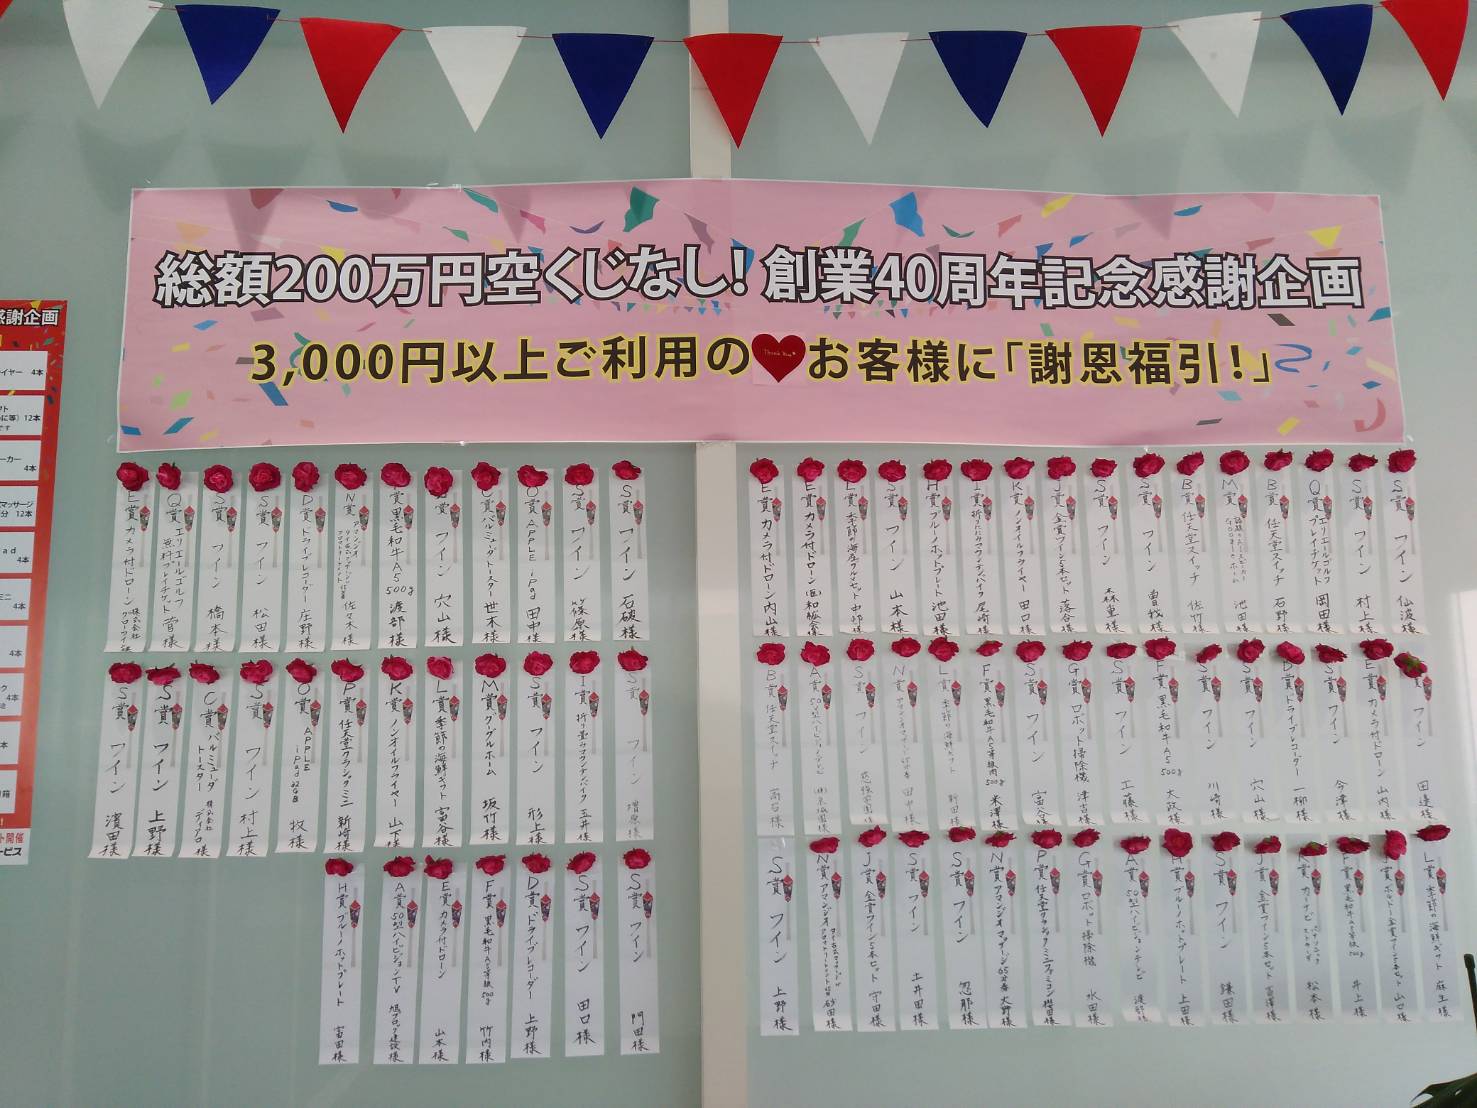 総額200万円空くじなし！創業40周年記念感謝企画
3,000円以上ご利用の
Thank You
お客様に「謝恩福引！」
感謝企画
イヤー 4本
12本
ーカー
4本
マッサージ
分 12本
ad
4本
ミニ
4本
4本
ク
4本
本
箱
ト開催
ービス
S賞 ワイン 仙波様
S賞 ワイン 村上様
Q賞 エリエールゴルフ プレーチケット 岡田様
B賞 任天堂スイッチ 石野様
M賞 池田様
B賞 任天堂スイッチ 佐竹様
S賞 ワイン 曽我様
S賞 ワイン 森重様
J賞 金賞ワイン5本セット 落合様
K賞 ノンオイルフライヤー 田口様
I賞 折りたたみマウンテンバイク 尾崎様
H賞 ブルーノホットプレート 池田様
S賞 ワイン 山本様
L賞 中邨様
E賞 カメラ付ドローン
E賞 カメラ付ドローン 内山様
賞 田邊様
E賞 カメラ付ドローン 山内様
S賞 ワイン 今津様
D賞 ドライブレコーダー 一柳様
S賞 ワイン 穴山様
S賞 ワイン 川崎様
F賞 黒毛和牛A5 500g 大政様
S賞 ワイン 工藤様
G賞 ロボット掃除機 津吉様
S賞 ワイン 富谷様
F賞 黒毛和牛A5等級肉 500g 米澤様
L賞 季節の海鮮ギフト 新田様
N賞 田中様
S賞 ワイン
A賞 50型ハイビジョンテレビ
B賞 任天堂スイッチ 高石様
L賞 季節の海鮮ギフト 麻生様
山口様
F賞 黒毛和牛A5等級 500g 井上様
K賞 カーナビ 松本様
J賞 金賞ワイン5本セット
S賞 ワイン 鎌田様
H賞 ブルーノホットプレート 上田様
A賞 50型ハイビジョンテレビ 渡部様
G賞 ロボット掃除機 水田様
P賞 任天堂クラシックミニファミコン 櫻田様
N賞 65分券 大野様
S賞 ワイン 忽那様
S賞 ワイン 土井田様
J賞 金賞ワイン5本セット 守田様
N賞 砂田様
S賞 ワイン 上野様
S賞 ワイン 石破様
S賞 ワイン 篠原様
O賞 APPLE iPad 田中様
C賞 バルミューダトースター 世本様
賞 ワイン 穴山様
賞 黒毛和牛A5 500g 渡部様
N賞 佐々木様
D賞 ドライブレコーダー 庄野様
S賞 ワイン 松田様
S賞 ワイン 橋本様
Q賞 エリエールゴルフ 無料プレイチケット 菅様
E賞 カメラ付ドローン 株式会社
S賞 ワイン 増原様
I賞 折り畳みマウンテンバイク 玉井様
S賞 ワイン 形上様
M賞 グーグルホーム 坂竹様
L賞 季節の海鮮ギフト 富谷様
K賞 ノンオイルフライヤー 山下様
P賞 任天堂クラシックミニ 新崎様
O賞 APPLE iPad 32GB 牧様
S賞 ワイン 村上様
C賞 バルミューダ トースター 株式会社
S賞 ワイン 上野様
S賞 ワイン 濱田様
S賞 ワイン 門田様
S賞 ワイン 田口様
D賞 ドライブレコーダー 上野様
F賞 黒毛和牛A5等級 500g 竹内様
E賞 カメラ付ドローン 山本様
A賞 50型ハイビジョンTV 旭ブロック建設様
H賞 ブルーノホットプレート 富田様